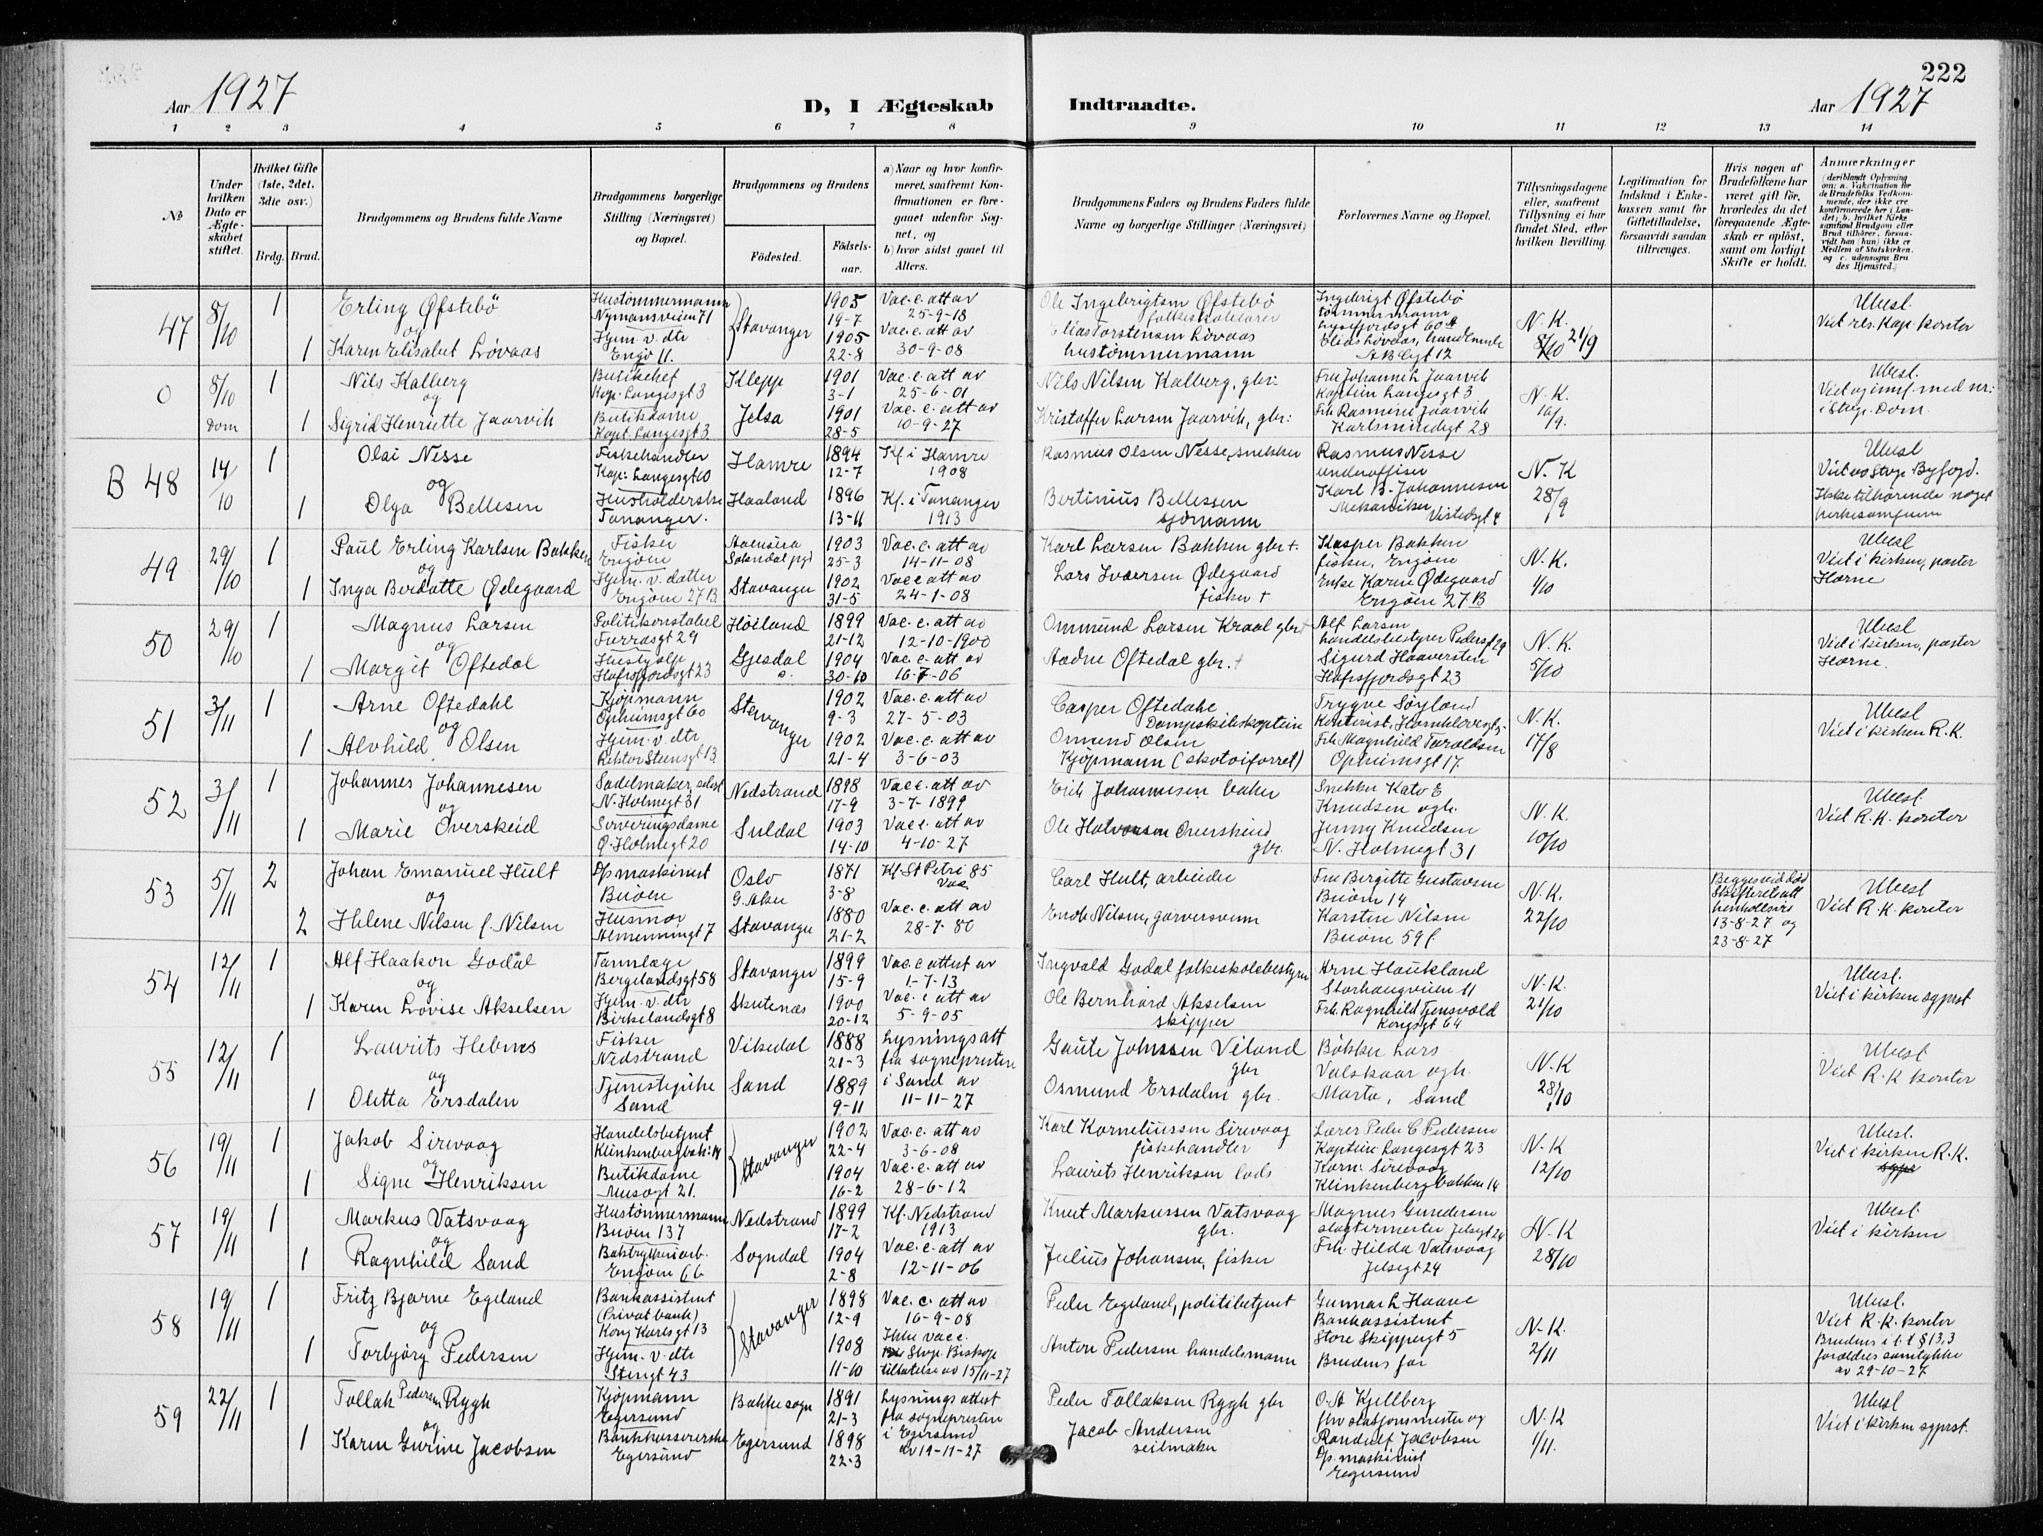 222
Aar 1927
D, I Ægteskab Indtraadte.
Aar 1927
1 2 3 4 5 6 7 8 9 10 11 12 13 14
№
Under hvilken Dato er Ægteskabet stiftet.
Hvilket Gifte (1ste, 2det, 3die osv.)
Brdg. Brud.
Brudgommens og Brudens fulde Navne
Brudgommens borgerlige Stilling (Næringsvei) og Bopæl.
Brudgommens og Brudens
Fødested.
Fødselsaar.
a) Naar og hvor konfirmeret, saafremt Konfirmationen er foregaaet udenfor Sognet, og
b) hvor sidst gaaet til Alters.
Brudgommens Faders og Brudens Faders fulde Navne og borgerlige Stillinger (Næringsvei)
Forlovernes Navne og Bopæl.
Tillysningsdagene eller, saafremt Tillysning ei har fundet Sted, efter hvilken Bevilling.
Legitimation for Indskud i Enkekassen samt for Giftetilladelse, forsaavidt saadan tiltrænges.
Hvis nogen af Brudefolkene har været gift før, hvorledes da det foregaaende Ægteskab er opløst, samt om lovligt Skifte er holdt.
Anmærkninger
(deriblandt Oplysning om: a. Vaktination for de Brudefolks Vedkommende, der ikke ere konfirmerede her i Landet; b. hvilket Kirkesamfund Brudgom eller Brud tilhører, forsaavidt han (hun) ikke er Medlem af Statskirken, og c. udensogns Brudes Hjemsted.)
47 8/10 1
Erling Øfstebø
og
1 Karen Elisabet Løvaas
Hustømmermann
Nymansveien 71
Hjem. v. dtr
Engø 11.
Stavanger
1905
19-7
1905
22-8
Vac. c. att av
25-9-18
Vac. c. att av
30-9-08
Ole Ingebrigtsen Øfstebø
folkeskolelærer
Elias Torstensen Løvaas
hustømmermann
Ingebrigt Øfstebø
tømmermann
N. K.
8/10 21/9
Ubesl.
Viet res. Kap. kontor
0 8/10 dom 1
Nils Kalberg
og
1 Sigrid Henriette Jaarvik
Butikchef
Kap. Langesgt 3
Butikdame
Kapt. Langesgt 3
Klepp
Jelsa
1901
3-1
1901
28-5
Vac. c. att av
25-6-01
Vac. c. att av
10-9-27
Nils Nilsen Kalberg, gbr.
Kristoffer Larsen Jaarvik, gbr:
Fru Johanne L Jaarvik
Kaptein Langesgt 3
Frk Rasmine Jaarvik
Karlsmindegt 28
N. K.
10/9.
Ubesl.
i Stvgr. Dom.
B 48 14/10 1
Olai Nesse
og
1 Olga Bellesen
Fiskehandler
Kap. Langesgt 10
Husholderske
Tananger.
Hamre
Haaland
1894
12-7
1896
13-11
Kf. i Hamre
1908
Kf. i Tananger
1913
Rasmus Olsen Nesse, snekker
Bertinius Bellessen
sjømann
Rasmus Nesse
underoffiser
Karl B. Johannesen
Mekaniker Vistedsgt 4
N. K
28/9
Ubesl
Viet av Stvgr Byfogd.
Ikke tilhørende noget
kirkesamfunn
49 29/10 1
Paul Erling Karlsen Bakken
og
1 Inga Berdatte Ødegaard
Fisker
Engøen
Hjem. v. datter
Engøen 27 B
Sokndal pgd
Stavanger
1903
25-3
1902
31-5
Vac. c. att av
14-11-08
Vac c att av
24-1-08
Karl Larsen Bakken gbr +
Lars Iversen Ødegaard
fisker +
Kasper Bakken
fisker, Engøen
Enke Karne Ødegaard
Engøen 27 B
N. K.
1/10
Ubesl
Viet i kirken, pastor
Horne
50 29/10 1
Magnus Larsen
og
1 Margit Oftedal
Politikonstabel
Furrasgt 29
Hushjelp
Hafrsfjordsgt 23
Høiland
Gjesdal
1899
21-12
1904
30-10
Vac. c. att av
12-10-1900
Vac. c. att av
16-7-06
Ommund Larsen Kraal gbr +
Aadne Oftedal gbr. +
Alf Larsen
handelsbestyrer Pedersgt 29
Sigurd Haaversten
Hafrsfjordsgt 23
N. K.
5/10
Ubesl
Viet i kirken, pastor
Horne.
51 3/11 1
Arne Oftedahl
og
1 Alvhild Olsen
Kjøpmann
Opheimsgt 60
Hjem. v. dtr
Rektor Steensgt 13
Stavanger
1902
9-3
1902
21-4
Vac. c. att av
27-5-03
Vac. c. att av
3-6-03
Casper Oftedahl
Dampskibskaptein
Ommund Olsen
Kjøpmann (skotøiforret)
Trygve Søyland
Frk Magnhild Taraldsen
Opheimsgt 17.
N. K.
17/8
Ubesl
Viet i kirken R. K.
52 3/11 1
Johannes Johannesen
og
1 Marie Overskeid
Sadelmaker, selvst
N. Holmegt 31
Serveringsdame
Ø. Holmegt 20
Nedstrand
Suldal
1898
17-9
1903
14-10
Vac c. att av
3-7-1899
Vac c. att av
4-10-27
Erik Johannesen baker
Ole Halvorsen Overskeid
gbr.
Snekker Kato E
Knudsen ogh.
Jenny Knudsen
N. Holmegt 31
N. K.
10/10
Ubesl.
Viet R. K. kontor
53 5/11 2
Johan Emanuel Hult
og
2 Helene Nilsen f. Nilsen
Dp maskinist
Buøen
Husmor
Almenningt 7
Oslo
G. Aker
Stavanger
1871
3-8
1880
21-2
Kf St Petri 85
Vac
Vac. c. att av
28-7-80
Carl Hult, arbeider
Enok Nilsen, garversvenn
Fru Bergitte Gustavsen
Buøen 14
Karsten Nilsen
Buøen 59 f.
N. K.
22/10
Begges ved død
Skifteretsatt
henholdsvis
13-8-27 og
23-8-27
Ubesl
Viet R. K. kontor
54 12/11 1
Alf Haakon Godal
og
1 Karen Lovise Akselsen
Tannlæge
Bergelandsgt 58
Hjem. v. dtr
Birkelandsgt 8
Stavanger
Skutenæs
1899
15-9
1900
20-12
Vac. c attest av
1-7-13
Vac. c att av
5-9-05
Ingvald Godal folkeskolebestyrer
Ole Bernhard Akselsen
skipper
Arne Haukland
Storhaugveien 11
Frk. Ragnhild Tjensvold
Kongsgt 64
N. K.
21/10
Ubesl.
Viet i kirken sgprst.
55 12/11 1
Laurits Hebnes
og
1 Oletta Ersdalen
Fisker
Nedstrand
Tjenestepike
Sand
Vikedal
Sand
1888
21-3
1889
9-11
Lysningsatt
fra sognepresten
i Sand av
11-11-27
Gaute Johnsen Viland
gbr
Osmund Ersdalen gbr.
Bøkker Lars
Valskaar ogh.
Marta, Sand
N. K
28/10
Ubesl
Viet R. K kontor
56 19/11 1
Jakob Sirevaag
og
1 Signe Henriksen
Handelsbetjent
Klinkenbergbak: 14
Butikdame
Musegt 21.
Stavanger
1902
22-4
1904
16-2
Vac. c. att av
3-6-08
Vac. c. att av
28-6-12
Karl Korneliussen Sirevaag
fiskehandler
Laurits Henriksen lods
Lærer Peder C Pedersen
Kaptein Langesgt 23
Korn: Sirevaag
Klinkenbergbakken 14
N. K
12/10
Ubesl.
Viet i kirken R. K.
57 19/11 1
Markus Vatsvaag
og
1 Ragnhild Sand
Hustømmermann
Buøen 137
Engøen 66
Nedstrand
Sogndal
1899
17-2
1904
2-8
Kf. Nedstrand
1913
Vac. c. att av
12-11-06
Knut Markussen Vatsvaag
gbr.
Julius Johansen, fisker
Magnes Gundersen
slagtermester Jelsegt 24
Frk Hilda Vatsvaag
Jelsegt 24
N. K
28/10
Ubesl
Viet i kirken
58 19/11 1
Fritz Bjarne Egeland
og
1 Torbjørg Pedersen
Bankassistent
(Privatbank)
Kong Karlsgt 13
Hjem. v. dtr
Stengt 43
Stavanger
1898
12-9
1908
11-10
Vac. c. att av
16-9-08
Ikke vacc.
Stvgr. Biskop
tillatelse av 15/11-27
Peder Egeland, politibetjent
Anton Pedersen handelsmann
Gunnar L Haave
Bankassistent
Store Skippergt 5
Brudens far
N. K.
2/11
Ubesl.
Viet R. K. kontor
Brudens i f. l § 13,3
foreldres samtykke
av 29-10-27
59 22/11 1
Tollak Pedersen Rygh
og
1 Karen Gurine Jacobsen
Kjøpmann
Egersund
Bankkassererske
Egersund
Bakke sogn
Egersund
1891
21-3
1898
22-3
Lysnings attest
fra sognepresten
i Egersund
av 19-11-27
Peder Tollaksen Rygh gbr
Jacob Andersen
seilmaker
O. A Kjellberg
fhv stasjonsmester og
Randulf Jacobsen
Dp. maskinist
Egersund
N. K
1/11.
Ubesl
Viet i kirken sgprst.